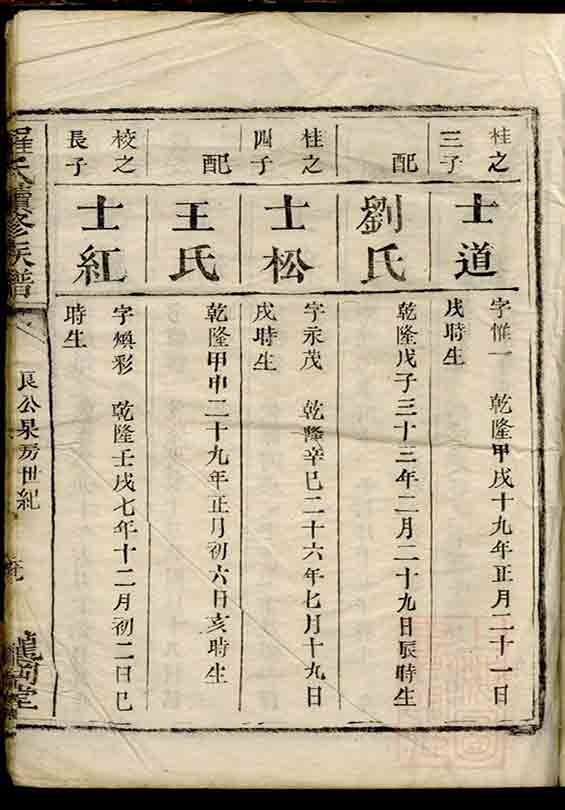 桂之
三子
士道
字惟一 乾隆甲戌十九年正月二十一日
戌時生
配
劉氏
乾隆戊子三十三年二月二十九日辰時生
桂之
四子
士松
字永茂 乾隆辛巳二十六年七月十九日
戌時生
配
王氏
乾隆甲申二十九年正月初六日亥時生
校之
長子
士紅
字煥彩 乾隆壬戌七年十二月初二日巳
時生
羅氏續修族譜
良公泉房世紀